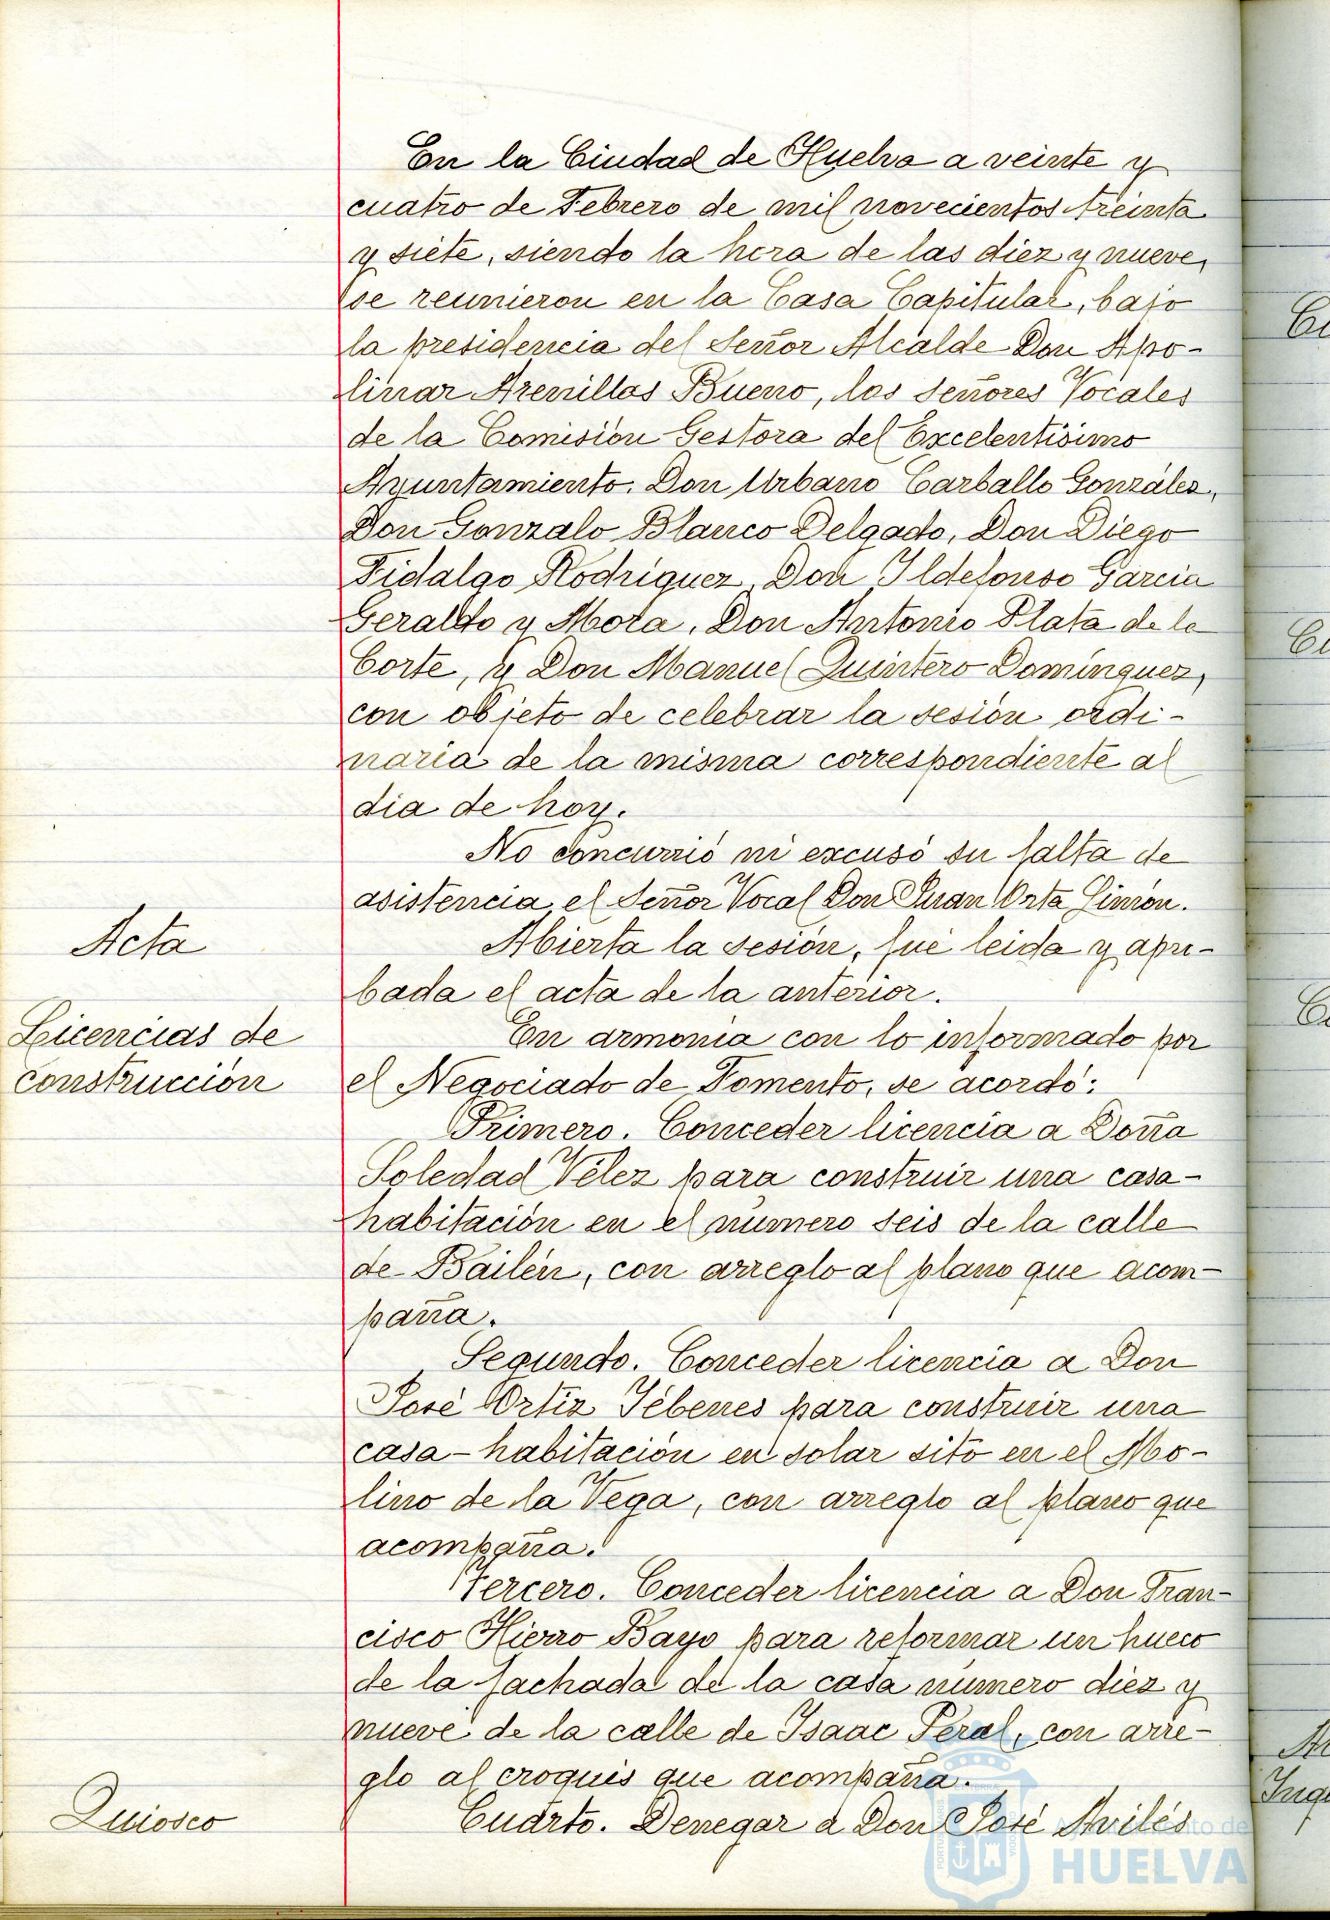 En la Ciudad de Huelva a veinte y
cuatro de Febrero de mil novecientos treinta
y siete, siendo la hora de las diez y nueve,
se reunieron en la Casa Capitular, bajo
la presidencia del Señor Alcalde Don Apo-
linar Arenillas Bueno, los señores Vocales
de la Comisión Gestora del Excelentísimo
Ayuntamiento, Don Urbano Carballo González,
Don Gonzalo Blanco Delgado, Don Diego
Fidalgo Rodríguez, Don Ildefonso Garcia
Geraldo y Mora, Don Antonio Plata de la
Corte, y Don Manuel Quintero Domínguez,
con objeto de celebrar la sesión ordi-
naria de la misma correspondiente al
dia de hoy.
No concurrió ni excusó su falta de
asistencia el Señor Vocal Don Juan Orta Limón.
Acta
Abierta la sesión, fué leida y apro-
bada el acta de la anterior.
Licencias de
construcción
En armonía con lo informado por
el Negociado de Fomento, se acordó:
Primero. Conceder licencia a Doña
Soledad Vélez para construir una casa-
habitación en el número seis de la calle
de Bailén, con arreglo al plano que acom-
paña.
Segundo. Conceder licencia a Don
José Ortiz Tébenes para construir una
casa-habitación en solar sito en el Mo-
lino de la Vega, con arreglo al plano que
acompaña.
Tercero. Conceder licencia a Don Fran-
cisco Hierro Bayo para reformar un hueco
de la fachada de la casa número diez y
nueve de la calle de Isaac Peral, con arre-
glo al croquis que acompaña.
Quiosco
Cuarto. Denegar a Don José Avilés
Ayuntamiento de
HUELVA